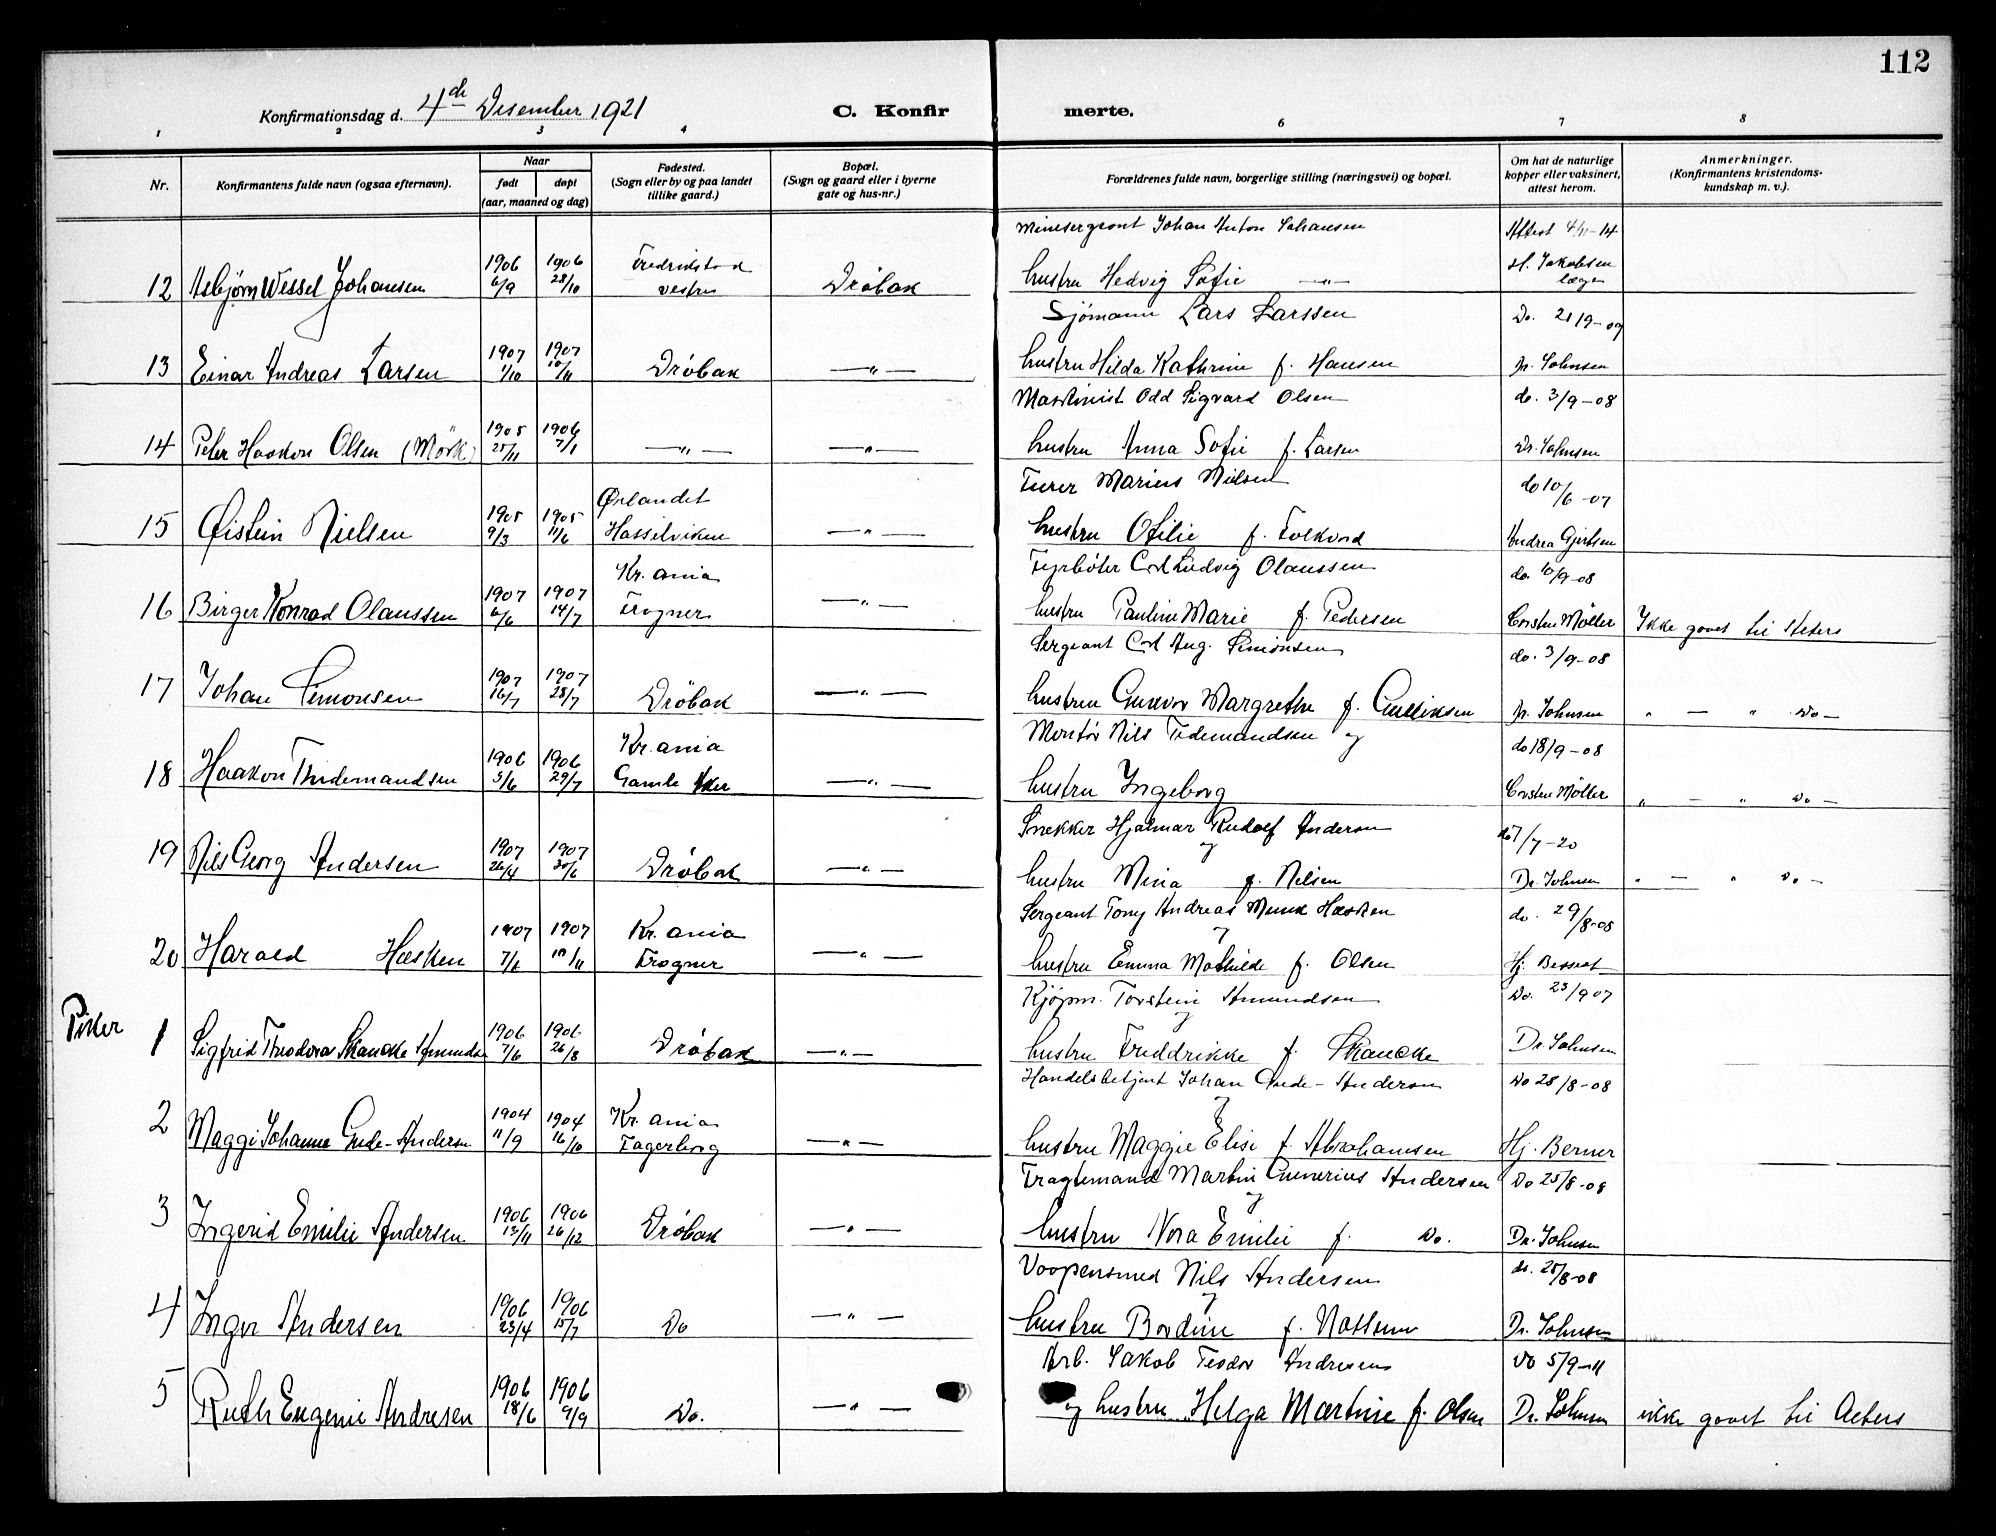 112
Konfirmationsdag d. 4de Desember 1921
C. Konfir merte.
1 2 3 4 6 7 8
Nr.
Konfirmantens fulde navn (ogsaa efternavn).
Naar
født døpt
(aar, maaned og dag)
Fødested.
(Sogn eller by og paa landet
tillike gaard.)
Bopæl.
(Sogn og gaard eller i byerne
gate og hus-nr.)
Forældrenes fulde navn, borgerlige stilling (næringsvei) og bopæl.
Om hat de naturlige
kopper eller vaksinert,
attest herom.
Anmerkninger.
(Konfirmantens kristendoms-
kundskap m. v.).
Minesergeant Johan Anton Johansen Attest 4/11-14
1906 1906 Fredrikstad H. Jakobsen
12 Asbjørn Wessel Johansen 6/9 28/10 vestre Dröbak hustru Hedvig Sofie —"— læge
Sjömann Lars Larssen Do. 21/9-09
1907 1907
13 Einar Andreas Larsen 1/10 10/11 Dröbak —"— hustru Hilda Kathrine f. Hansen Johnsen
Maskinist Odd Sigvard Olsen do. 3/9-08
1905 1906
14 Peter Haakon Olsen (Mörk) 25/11 7/1 —"— —"— hustru Anna Sofie f. Larsen Dr. Johnsen
Furer Marius Nielsen do 10/6-07
1905 1905 Ørlandet
15 Øistein Nielsen 9/3 11/6 Hasselviken —"— hustru Otilie f. Folkvord Andrea Gjertsen
Fyrbøter Carl Ludvig Olaussen do. 10/9-08
1907 1907 Kr.ania
16 Birger Konrad Olaussen 6/6 14/7 Frogner —"— hustru Pauline Marie f. Pedersen Carsten Møller Ikke gaaet til Alters
Sergeant Carl Aug. Simonsen do. 3/9-08
1907 1907
17 Johan Simonsen 16/7 28/7 Dröbak —"— hustru Gunvor Margrethe f. Gulliksen Johnsen " — " Do —
Montör Nils Tidemandsen og do 18/9-08
1906 1906 Kr.ania
18 Haakon Thidemandsen 5/6 29/7 Gamle Aker —"— hustru Ingeborg Carsten Møller " — " Do —
Snekker Hjalmar Rudolf Andersen og 7/7-20
1907 1907
19 Nils Georg Andersen 26/4 30/6 Dröbak —"— hustru Mina f. Nilsen Dr. Johnsen " — " Do —
Sergeant Tony Andreas Munk Hæsken og do. 29/8-08
1907 1907 Kr.ania
20 Harald Hæsken 10/11 Frogner —"— hustru Emma Mathilde f. Olsen Hj. Bessat
Kjöpm. Torstein Amundsen og Do. 23/9 07
Piker
1906 1906
1 Sigfrid Theodora Skancke Amundsen 7/6 26/8 Dröbak —"— hustru Freddrikke f. Skancke Dr. Johnsen
Handelsbetjent Johan Gude-Andersen og Do 28/8-08
1904 1904 Kr.ania
2 Maggi Johanne Gude-Andersen 11/9 16/10 Fagerborg —"— hustru Maggie Elise f. Abrahamsen Hj. Berner
Fragtemand Martin Gunerius Andersen og Do 25/8-08
1906 1906
3 Ingerid Emilie Andersen 13/11 26/12 Dröbak —"— hustru Nora Emilie f. Do. Dr. Johnsen
Vaapensmed Nils Andersen og do. 25/8-08
1906 1906
4 Inger Andersen 23/4 15/7 Do —"— hustru Bordine f. Dr. Johnsen
Arb. Jakob Teodor Andresen Do 5/9-11
1906 1906
5 Ruth Eugenie Andresen 18/6 9/9 Do. —"— og hustru Helga Martine f. Olsen Dr. Johnsen ikke gaaet til Alters